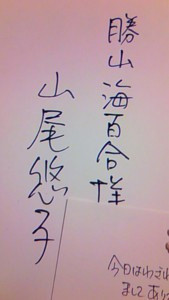 勝山海百合様
山尾悠子
今日はわざわざ
ましてあり